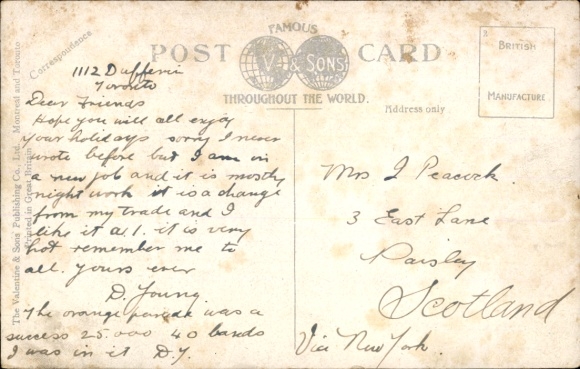 FAMOUS
POST CARD
V & SONS
THROUGHOUT THE WORLD.
BRITISH
MANUFACTURE
Correspondence
Address only
The Valentine & Sons Publishing Co., Ltd. Montreal and Toronto
Printed in Great Britain
1112 Dufferin
Toronto
Dear Friends
hope you will all enjoy
your holidays sorry I never
wrote before but I am in
a new job and it is mostly
night work it is a change
from my trade and I
like it all. it is very
hot remember me to
all. yours ever
D. Young.
The orange parade was a
success 25.000 40 bands
I was in it D.Y.
Mrs J Peacock.
3 East Lane
Paisley
Scotland
Via New York.